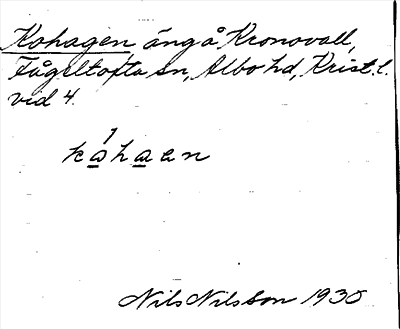 Kohagen, äng å Kronovall,
Fågeltofta sn, Albo hd, Krist. l.
vid 4.
kòhaen
Nils Nilsson 1930